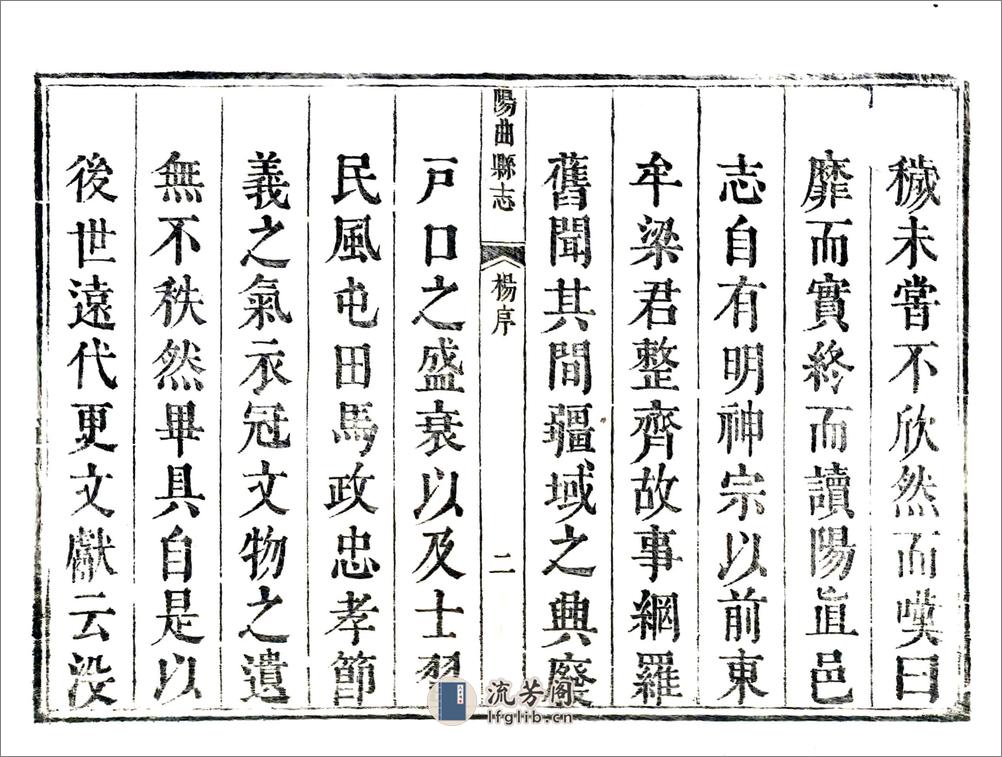 穢未嘗不欣然而嘆曰
靡而實終而讀陽直邑
志自有明神宗以前東
牟梁君整齊故事網羅
舊聞其間疆域之典廢
陽曲縣志
楊序
二
戸口之盛衰以及士習
民風屯田馬政忠孝節
義之氣衣冠文物之遺
無不秩然畢具自是以
後世遠代更文獻云没
流芳阁
lfglib.cn